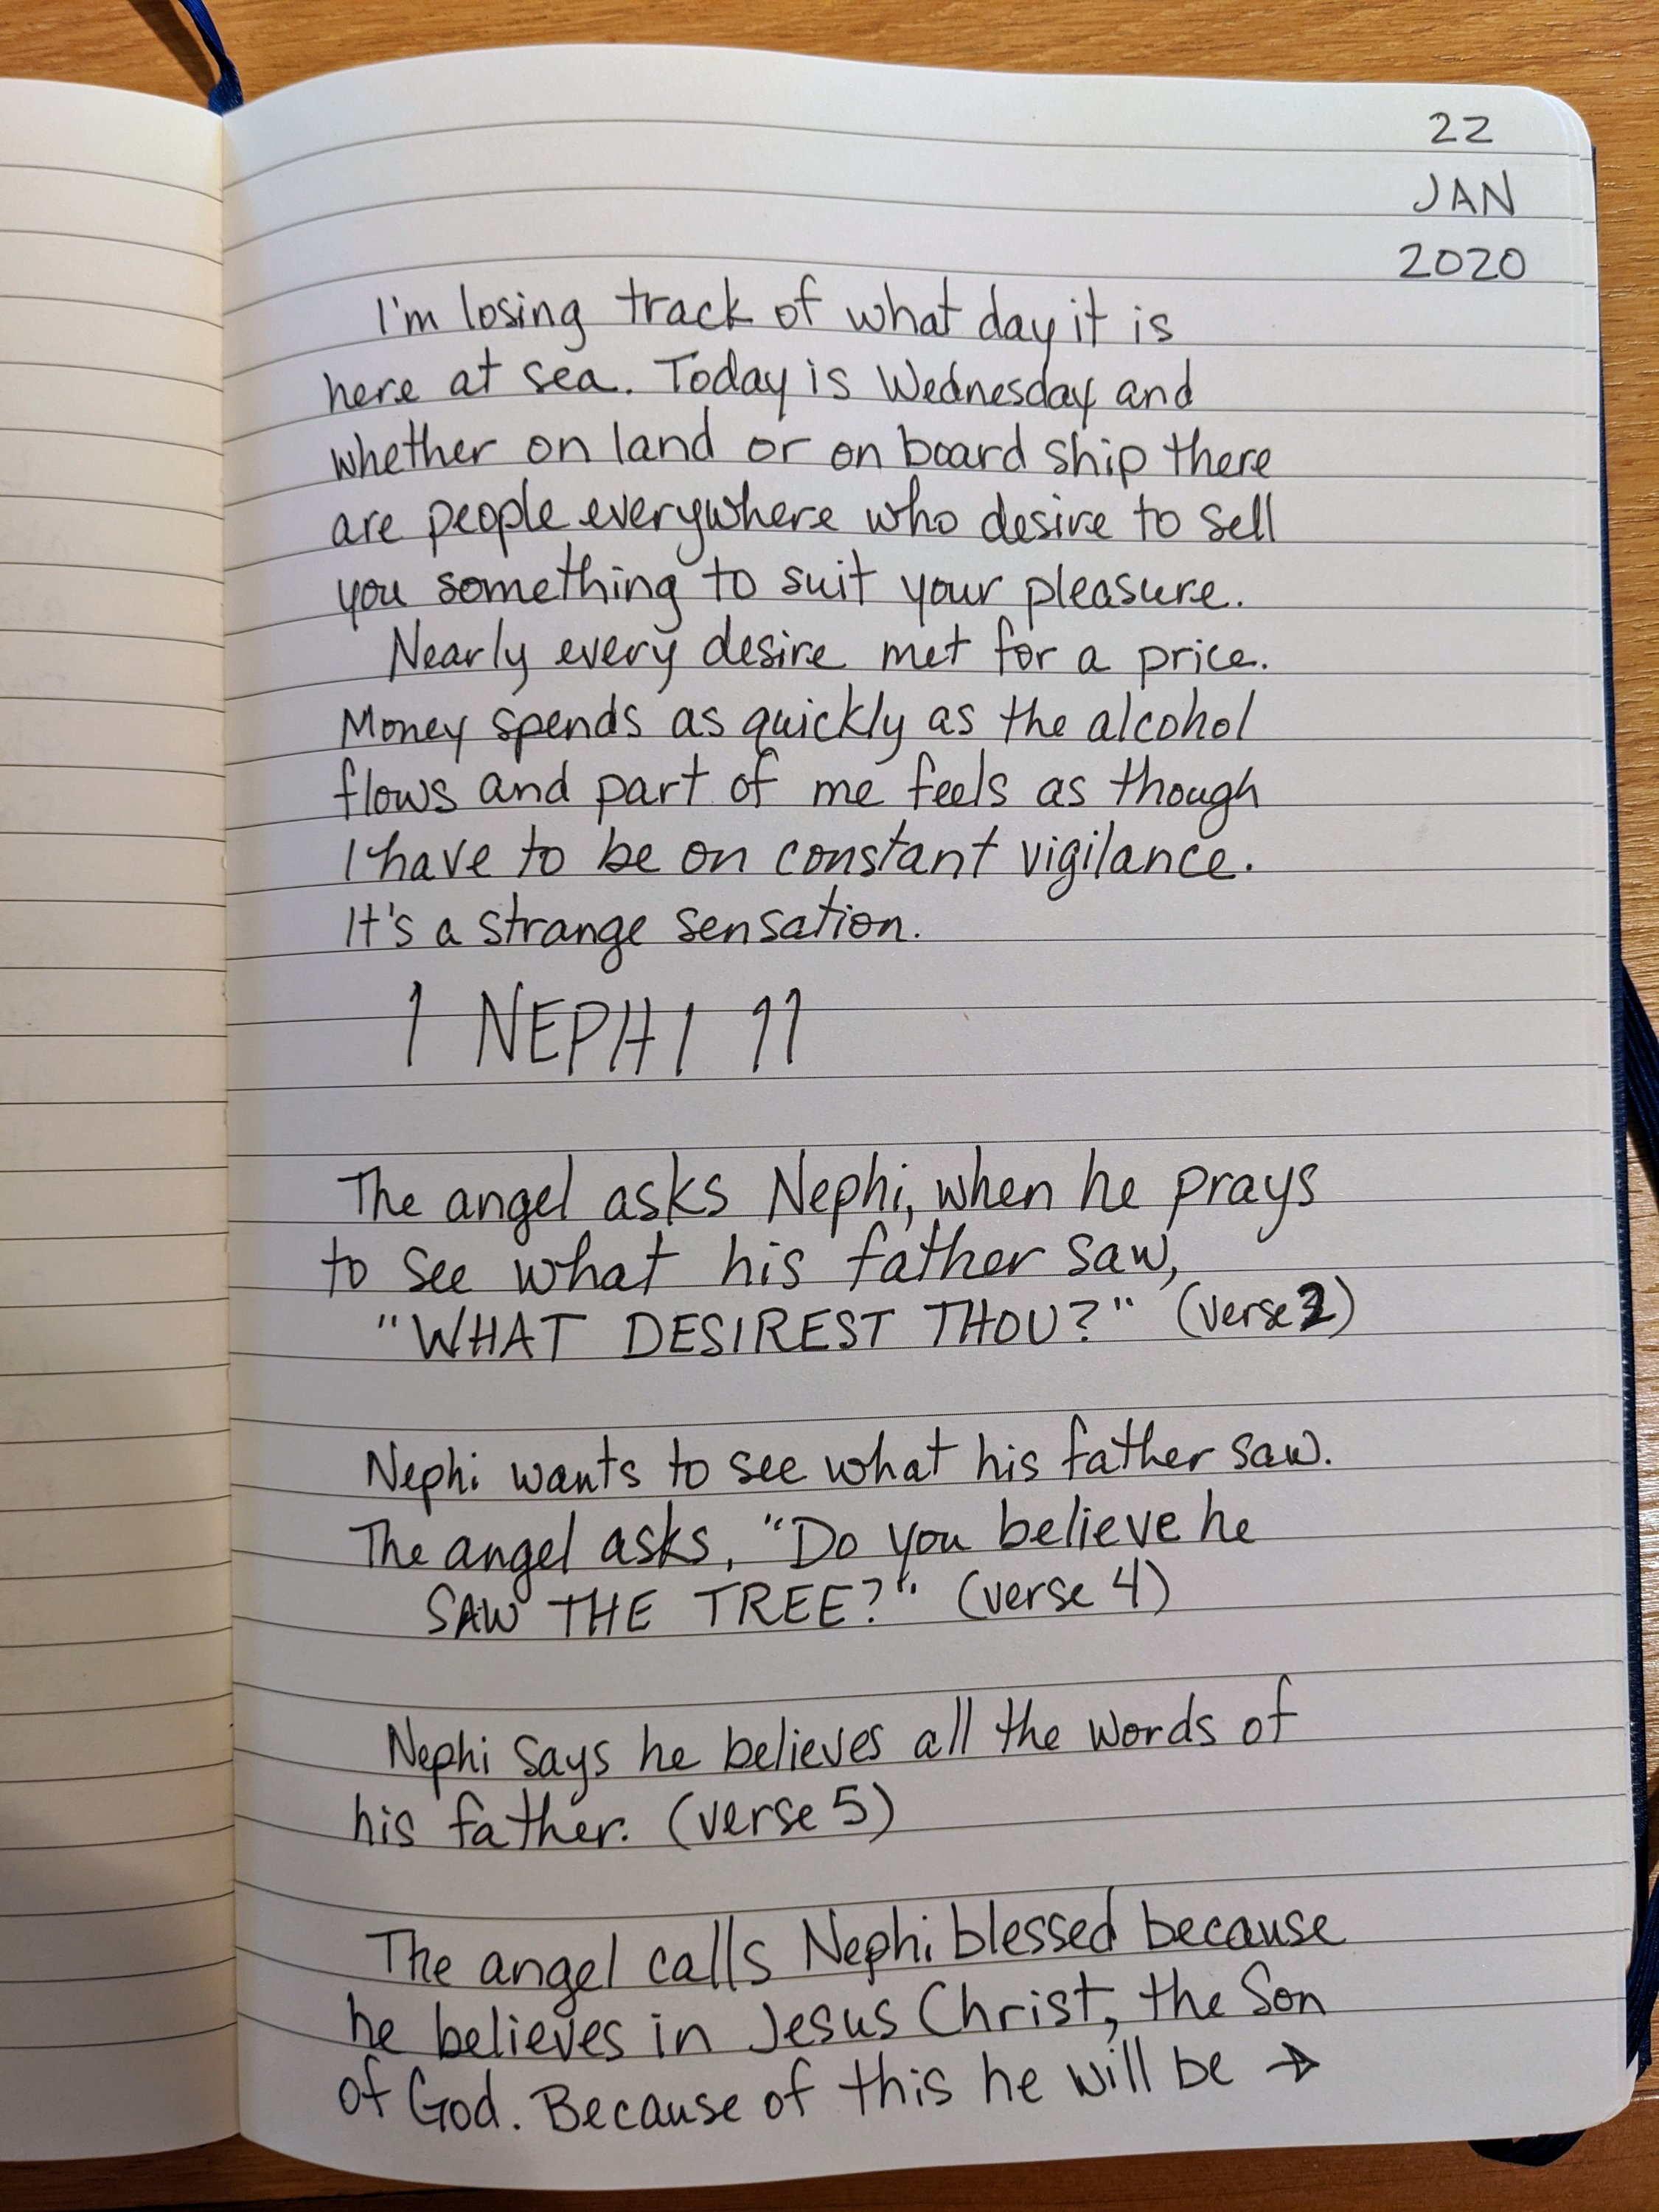 22
JAN
2020
I'm losing track of what day it is
here at sea. Today is Wednesday and
whether on land or on board ship there
are people everywhere who desire to sell
you something to suit your pleasure.
Nearly every desire met for a price.
Money spends as quickly as the alcohol
flows and part of me feels as though
I have to be on constant vigilance.
It's a strange sensation.
1 NEPHI 11
The angel asks Nephi, when he prays
to see what his father saw,
"WHAT DESIREST THOU?" (verse 2)
Nephi wants to see what his father saw.
The angel asks, "Do you believe he
SAW THE TREE?". (verse 4)
Nephi says he believes all the words of
his father. (verse 5)
The angel calls Nephi blessed because
he believes in Jesus Christ, the Son
of God. Because of this he will be →